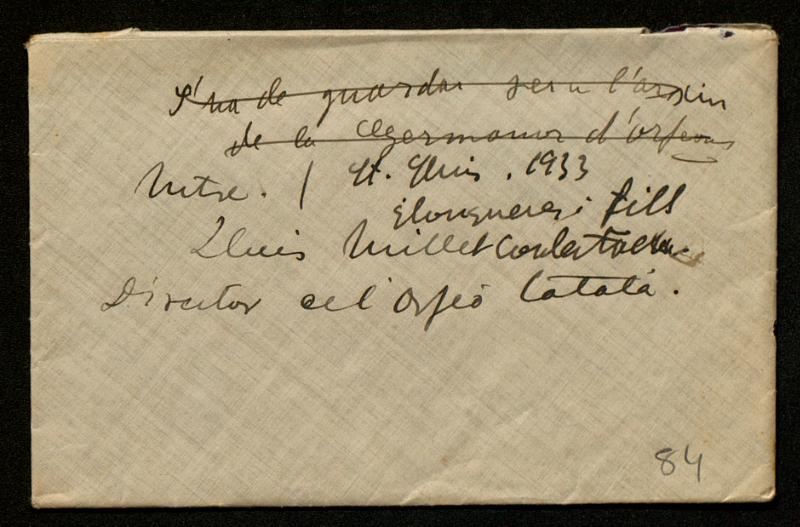 S'ha de guardar per a l'arxiu
de la Germanor d'Orfeons
Mtre. / St. Lluis. 1933
Llongueres i fill
Lluis Millet contestaren.
Director del Orfeó Català.
84